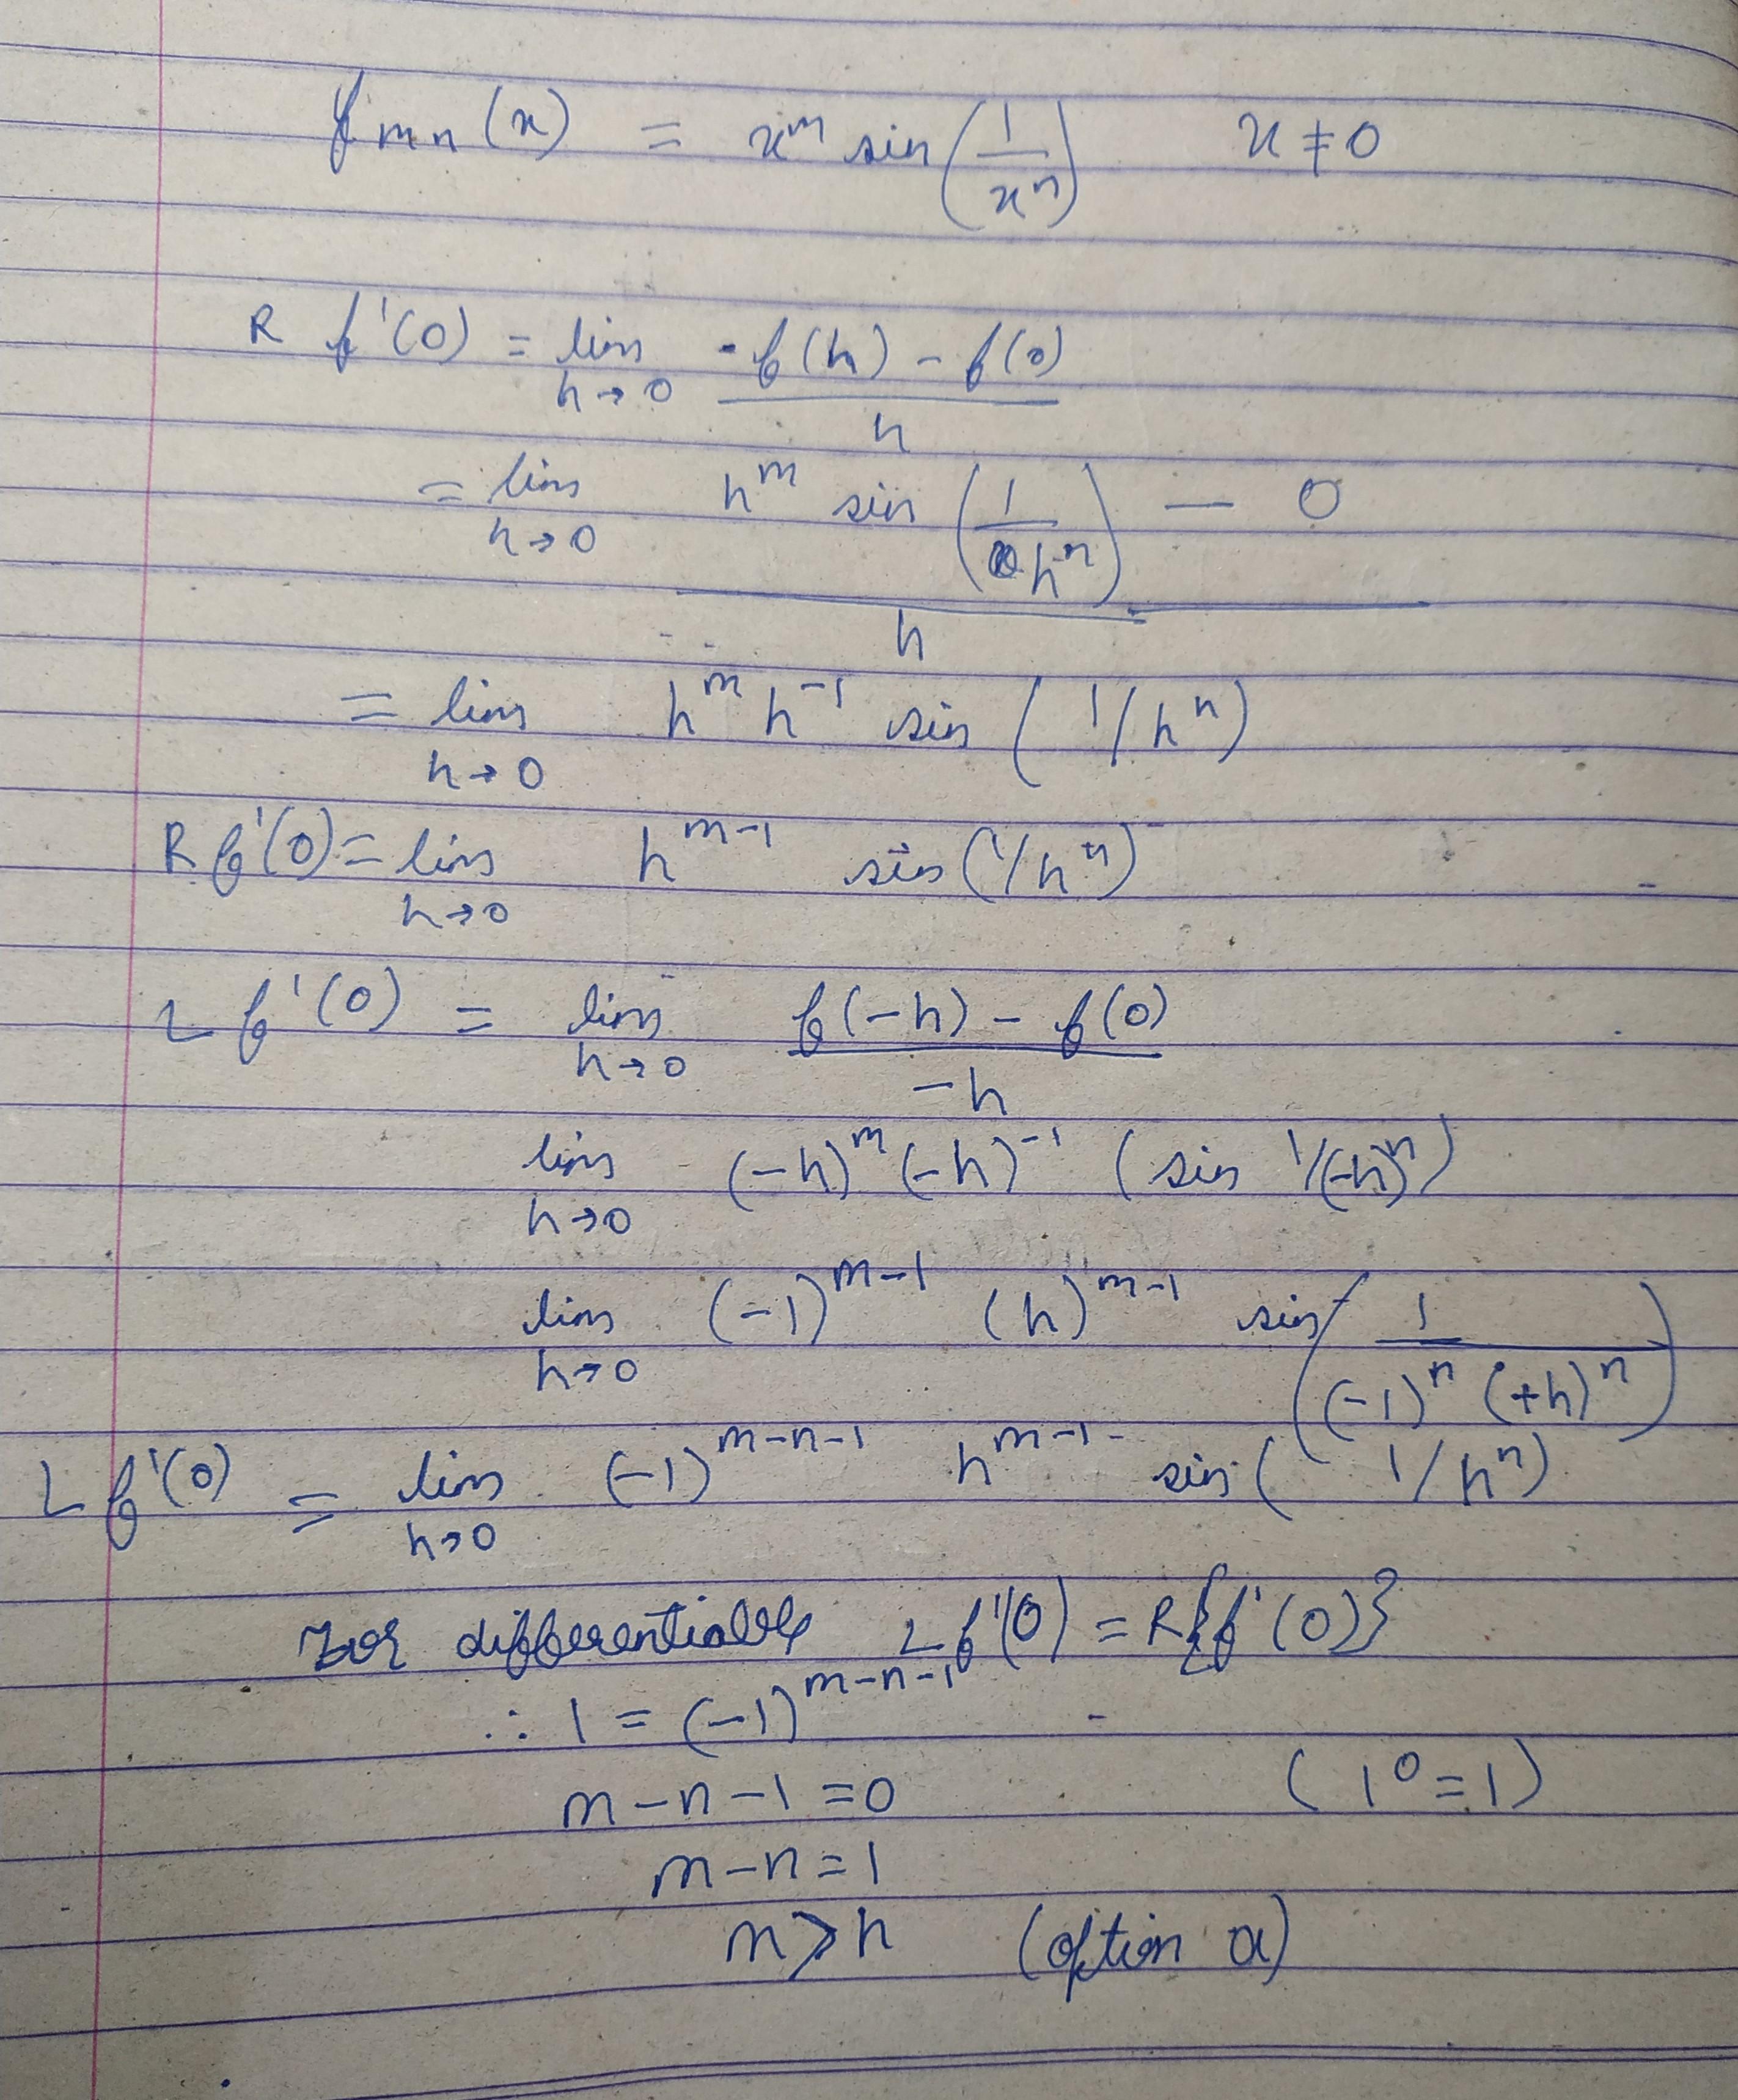 fmn(x) = x^m sin(1/x^n) x ≠ 0
R f'(0) = lim h→0 f(h) - f(0) / h
= lim h→0 h^m sin(1/h^n) — 0 / h
= lim h→0 h^m h^-1 sin(1/h^n)
R f'(0) = lim h→0 h^m-1 sin(1/h^n)
L f'(0) = lim h→0 f(-h) - f(0) / -h
lim h→0 (-h)^m (-h)^-1 (sin 1/(-h)^n)
lim h→0 (-1)^m-1 (h)^m-1 sin(1/(-1)^n (+h)^n)
L f'(0) = lim h→0 (-1)^m-n-1 h^m-1 sin(1/h^n)
For differentiable L f'(0) = R{f'(0)}
∴ 1 = (-1)^m-n-1
m-n-1 = 0 (1^0 = 1)
m-n = 1
m > n (option a)